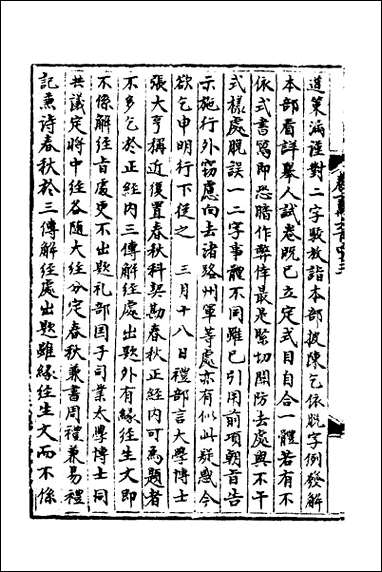 道策滿謹對二字敢放詣本部披陳乞依脫字例發解
本部看詳舉人試卷既已立定式目自合一體若有不
依式書寫即恐暗作弊倖最是緊切關防去處與不干
式樣處脫誤一二字事體不同雖已引用前項朝旨告
示施行外竊慮向去諸路州軍等處亦有似此疑惑今
欲乞申明行下從之 三月十八日禮部言大學博士
張大亨稱近復置春秋科契勘春秋正經內可爲題者
不多乞於正經內三傳解經處出題外有緣經生文即
不係解經旨處更不出題礼部国子司業太學博士同
共議定將中經各隨大經分定春秋兼書周禮兼易禮
記兼诗春秋於三傳解經處出題雖緣经生文而不係